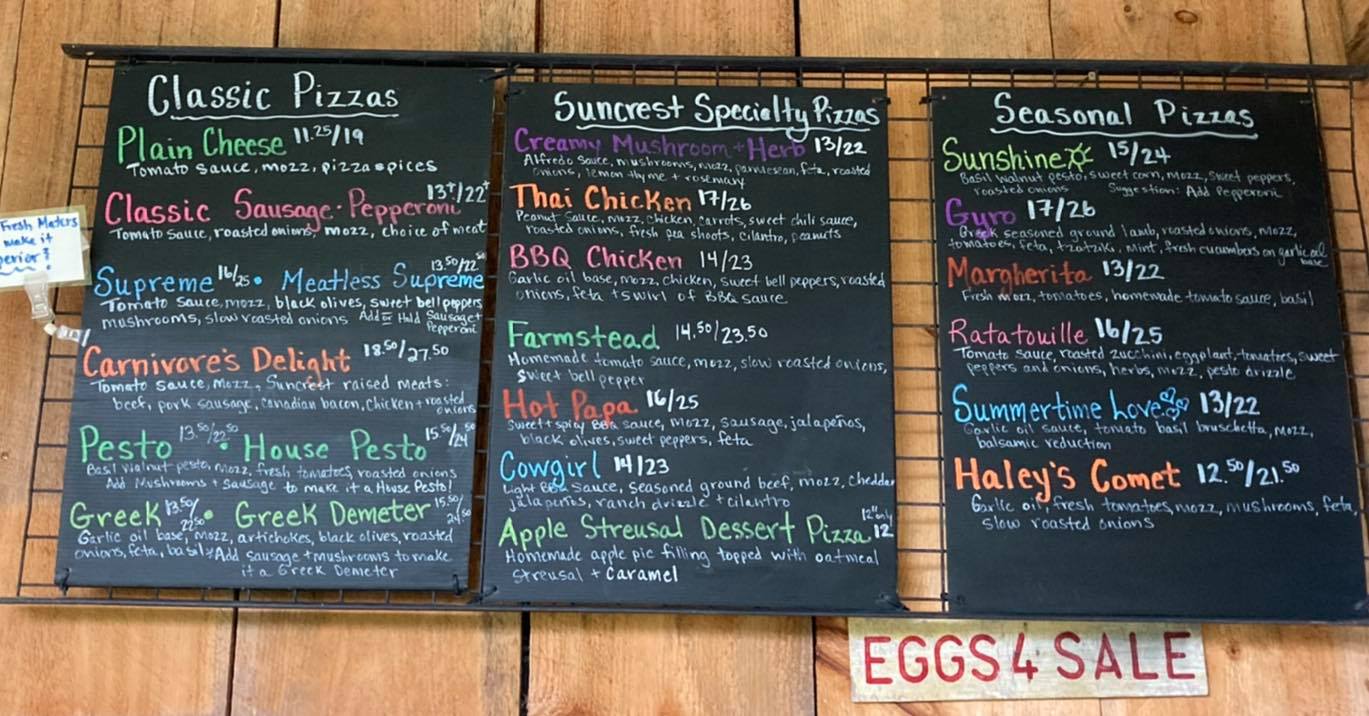 Classic Pizzas
Plain Cheese 11.25/19
Tomato Sauce, mozz, pizza spices
Classic Sausage · Pepperoni 13+/22+
Tomato Sauce, roasted onions, mozz, choice of meat
Supreme 16/25 • Meatless Supreme 13.50/22.50
Tomato Sauce, mozz, black olives, sweet bell peppers
mushrooms, slow roasted onions Add or Hold Sausage +
Pepperoni
Carnivore's Delight 18.50/27.50
Tomato sauce, Mozz, Suncrest raised meats:
beef, pork sausage, Canadian bacon, chicken + roasted
onions
Pesto 13.50/22.50 • House Pesto 15.50/24.50
Basil walnut pesto, mozz, fresh tomatoes, roasted onions
Add Mushrooms + Sausage to make it a House Pesto!
Greek 13.50/22.50 • Greek Demeter 15.50/24.50
Garlic oil base, mozz, artichokes, black olives, roasted
onions, feta, basil * Add sausage + mushrooms to make
it a Greek Demeter
Fresh Maters
make it
Suncrest Specialty Pizzas
Creamy Mushroom + Herb 13/22
Alfredo Sauce, mushrooms, mozz, parmesean, feta, roasted
onions, lemon thyme + rosemary
Thai Chicken 17/26
Peanut Sauce, mozz, chicken, carrots, sweet chili sauce,
roasted onions, fresh pea shoots, cilantro, peanuts
BBQ Chicken 14/23
Garlic oil base, mozz, chicken, sweet bell peppers, roasted
onions, feta + swirl of BBQ sauce
Farmstead 14.50/23.50
Homemade tomato sauce, mozz, slow roasted onions,
Sweet bell pepper
Hot Papa 16/25
Sweet + spicy BBQ sauce, mozz, sausage, jalapeños,
black olives, sweet peppers, feta
Cowgirl 14/23
Light BBQ Sauce, seasoned ground beef, mozz, cheddar
jalapeños, ranch drizzle + cilantro
Apple Streusal Dessert Pizza 12" only 12
Homemade apple pie filling topped with oatmeal
Streusal + caramel
Seasonal Pizzas
Sunshine 15/24
Basil walnut pesto, sweet corn, mozz, sweet peppers,
roasted onions Suggestion: Add Pepperoni
Gyro 17/26
Greek seasoned ground lamb, roasted onions, mozz,
tomatoes, feta, tzatziki, mint, fresh cucumbers on garlic oil
base
Margherita 13/22
Fresh mozz, tomatoes, homemade tomato sauce, basil
Ratatouille 16/25
Tomato sauce, roasted zucchini, eggplant, tomatoes, sweet
peppers and onions, herbs, mozz, pesto drizzle
Summertime Love 13/22
Garlic oil sauce, tomato basil bruschetta, mozz,
balsamic reduction
Haley's Comet 12.50/21.50
Garlic oil, fresh tomatoes, mozz, mushrooms, feta,
slow roasted onions
EGGS 4 SALE